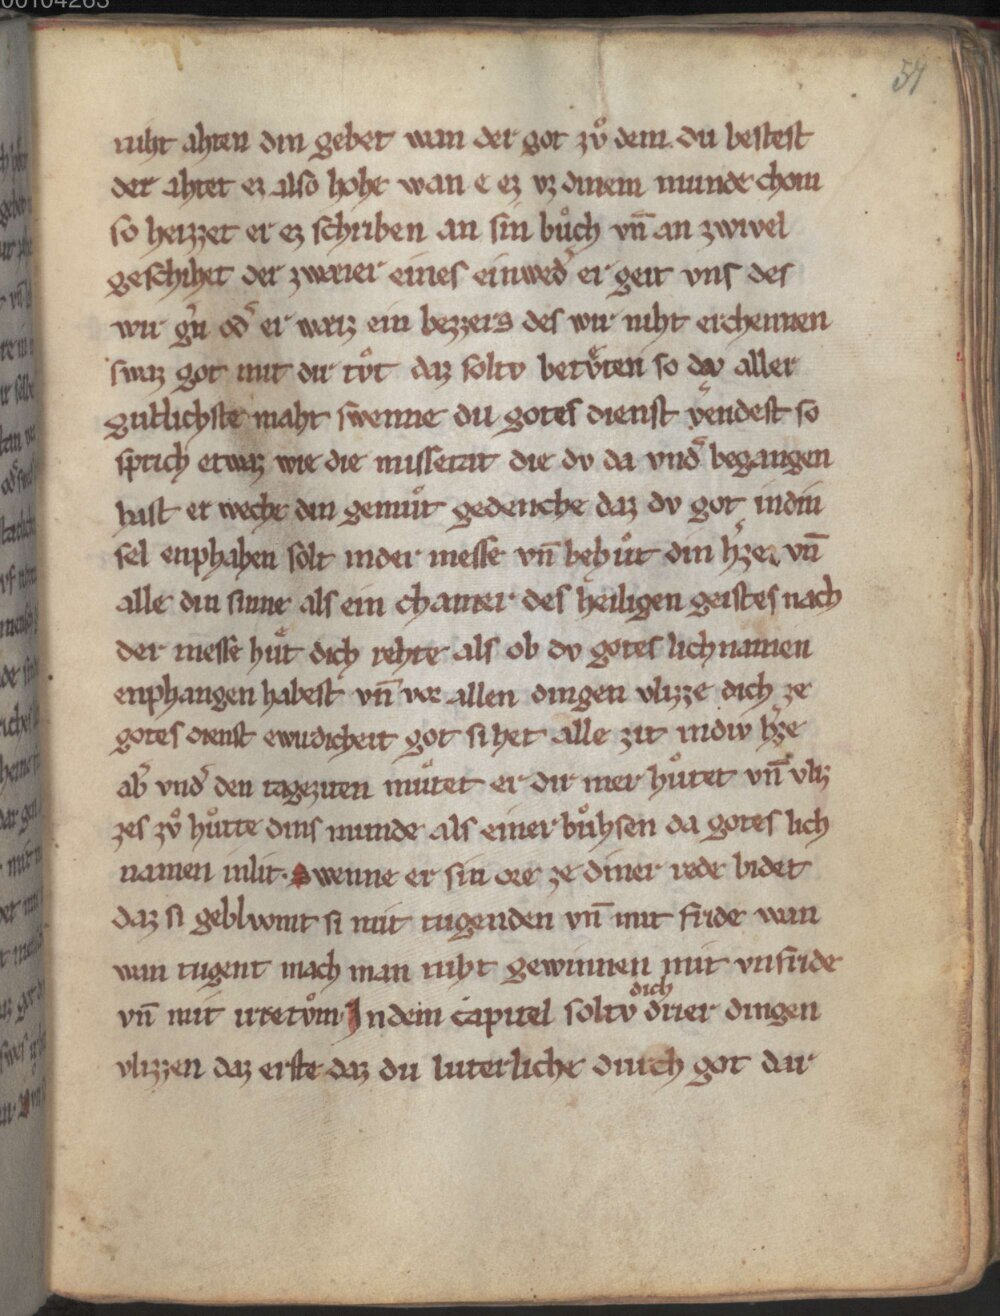 00104263
57
niht ahten din gebet wan der got zuͦ dem du bestest
der ahtet ez also hohe wan e ez vz dinem munde chom
so heizzet er ez schriben an sin buͦch vn̄ an zwivel
geschihet der zwaier eines einwed͛ er geit vns des
wir g͛n od͛ er waiz ein bezzers des wir niht erchennen
swaz got mit dir tuͦt daz soltv betvͤten so dv aller
gutlichste maht swenne du gotes dienst v͛endest so
sprich etwaz wie die missetat die dv da vnd͛ begangen
hast er weche din gemuͤt gedenche daz dv got in din
sel enphahen solt in der messe vn̄ behuͤt din h͛ze vn̄
alle din sinne als ein chamer des heiligen geistes nach
der messe huͤt dich rehte als ob dv gotes lichnamen
enphangen habest vn̄ vor allen dingen vlizze dich ze
gotes dienst ewudicheit got sihet alle zit in div h͛ze
ab͛ vnd͛ den tageziten muͤtet er dir mer huͤtet vn̄ vliz
zes zvͦ huͤtte dins munde als einer buͤhsen da gotes lich
namen inlit. Swenne er sin ore ze diner rede bidet
daz si geblvomt si mit tugenden vn̄ mit fride wan
wan tugent mach man niht gewinnen mit vnfride
vn̄ mit irretvͦm. In dem capitel soltv dich drier dingen
vlizzen daz erste daz du luterliche durch got dar